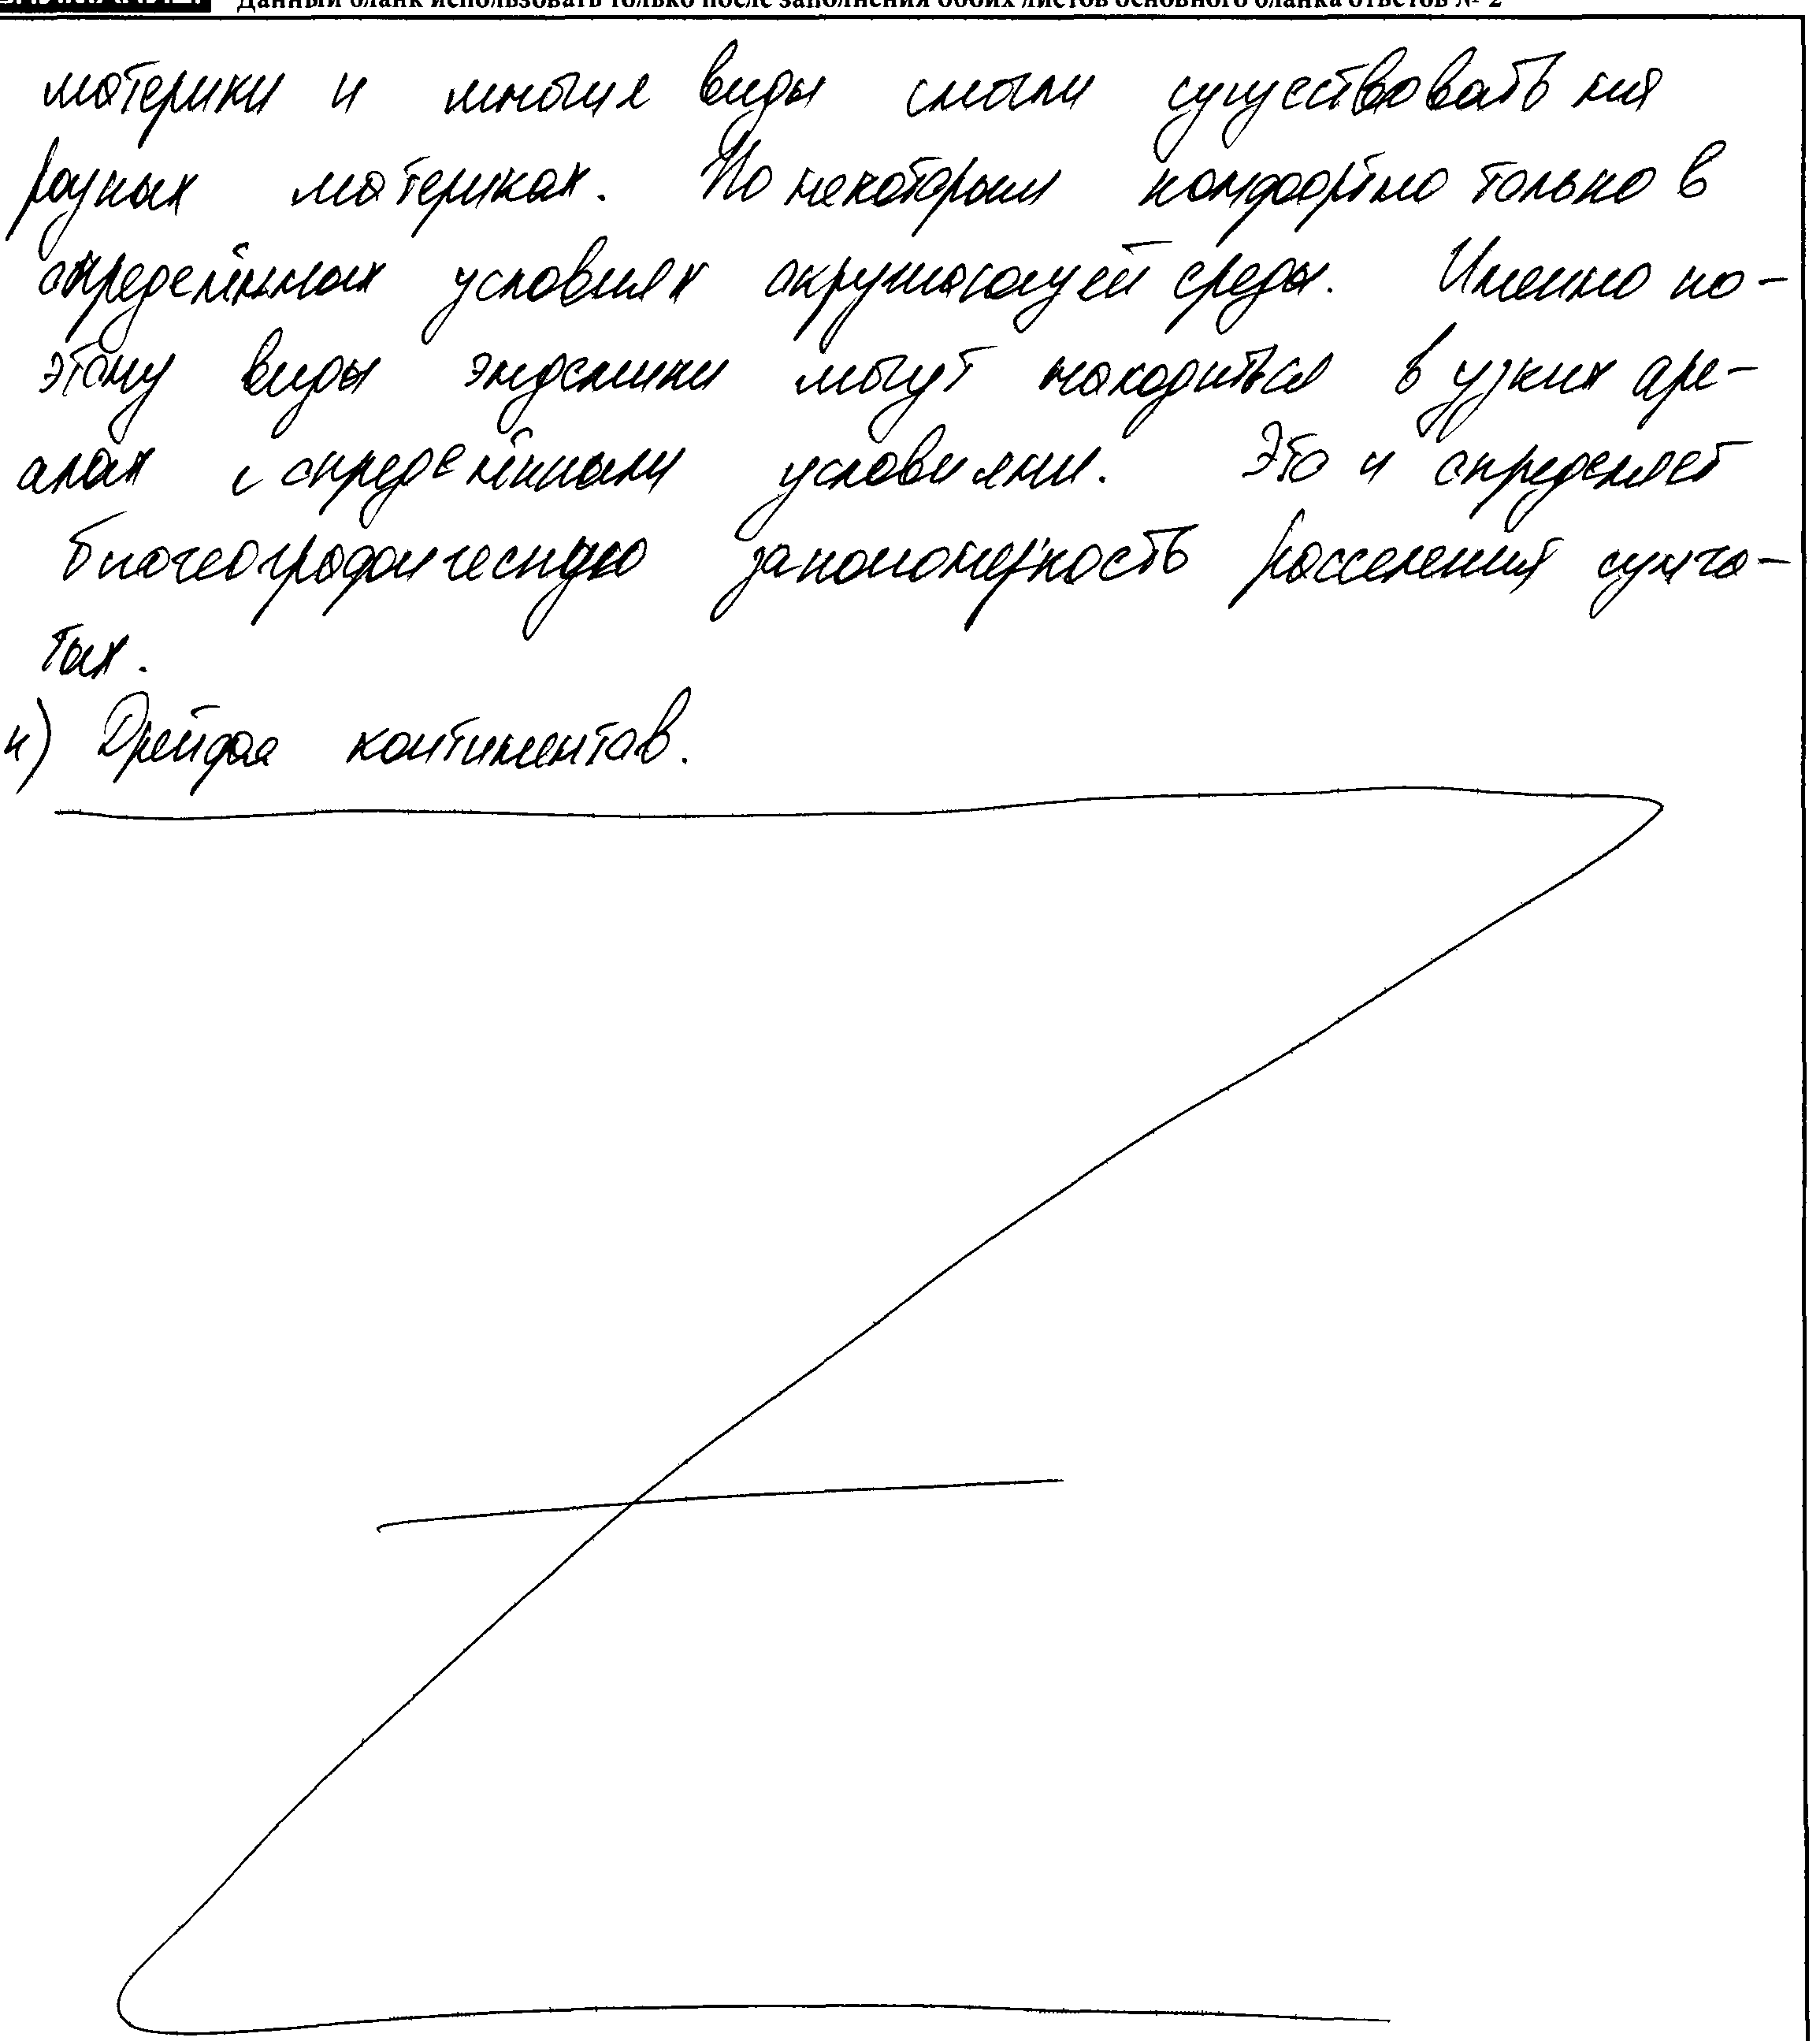 Данный бланк использовать только после заполнения обоих листов основного бланка ответов № 2
материки и многие виды смогли существовать на
разных материках. Но некоторым комфортно только в
определённых условиях окружающей среды. Именно по-
этому виды эндемики могут находиться в узких аре-
алах с определёнными условиями. Это и определяет
биогеографическую закономерность расселения сумча-
тых.
4) Дрейфа континентов.